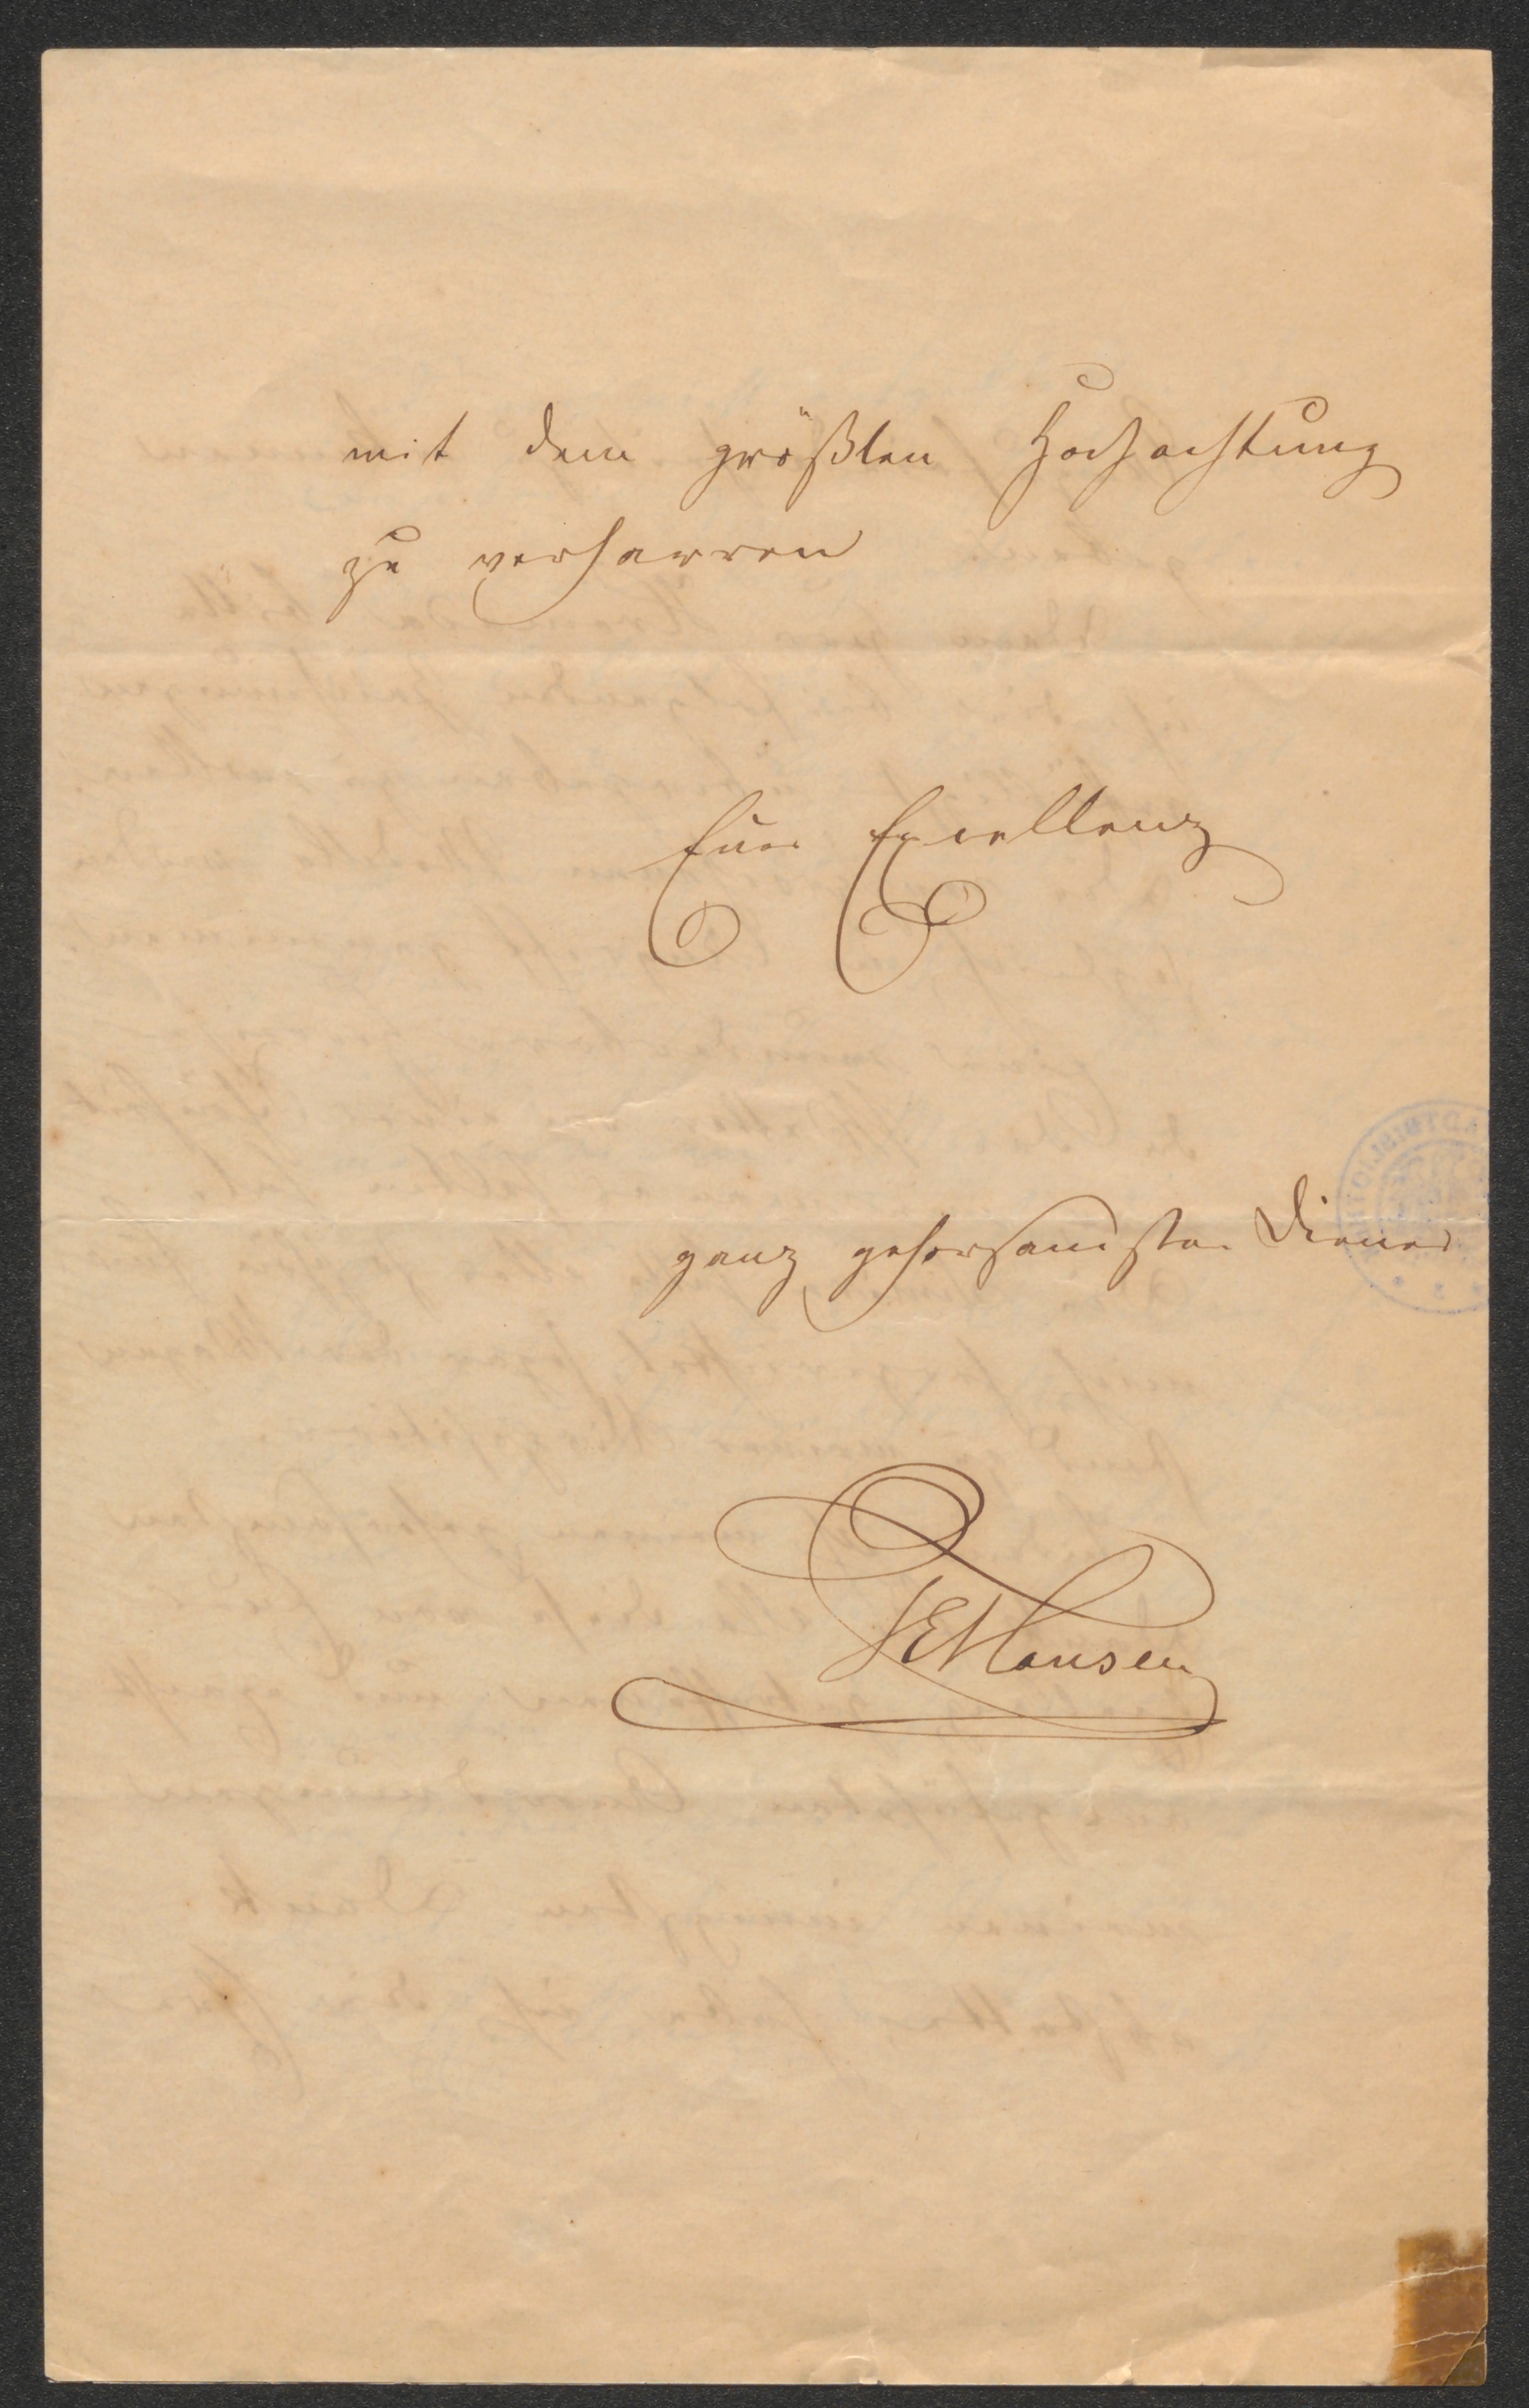 mit dem größten Hochachtung
zu verharren
Euer Excellenz
ganz gehorsamster Diener
Hansen